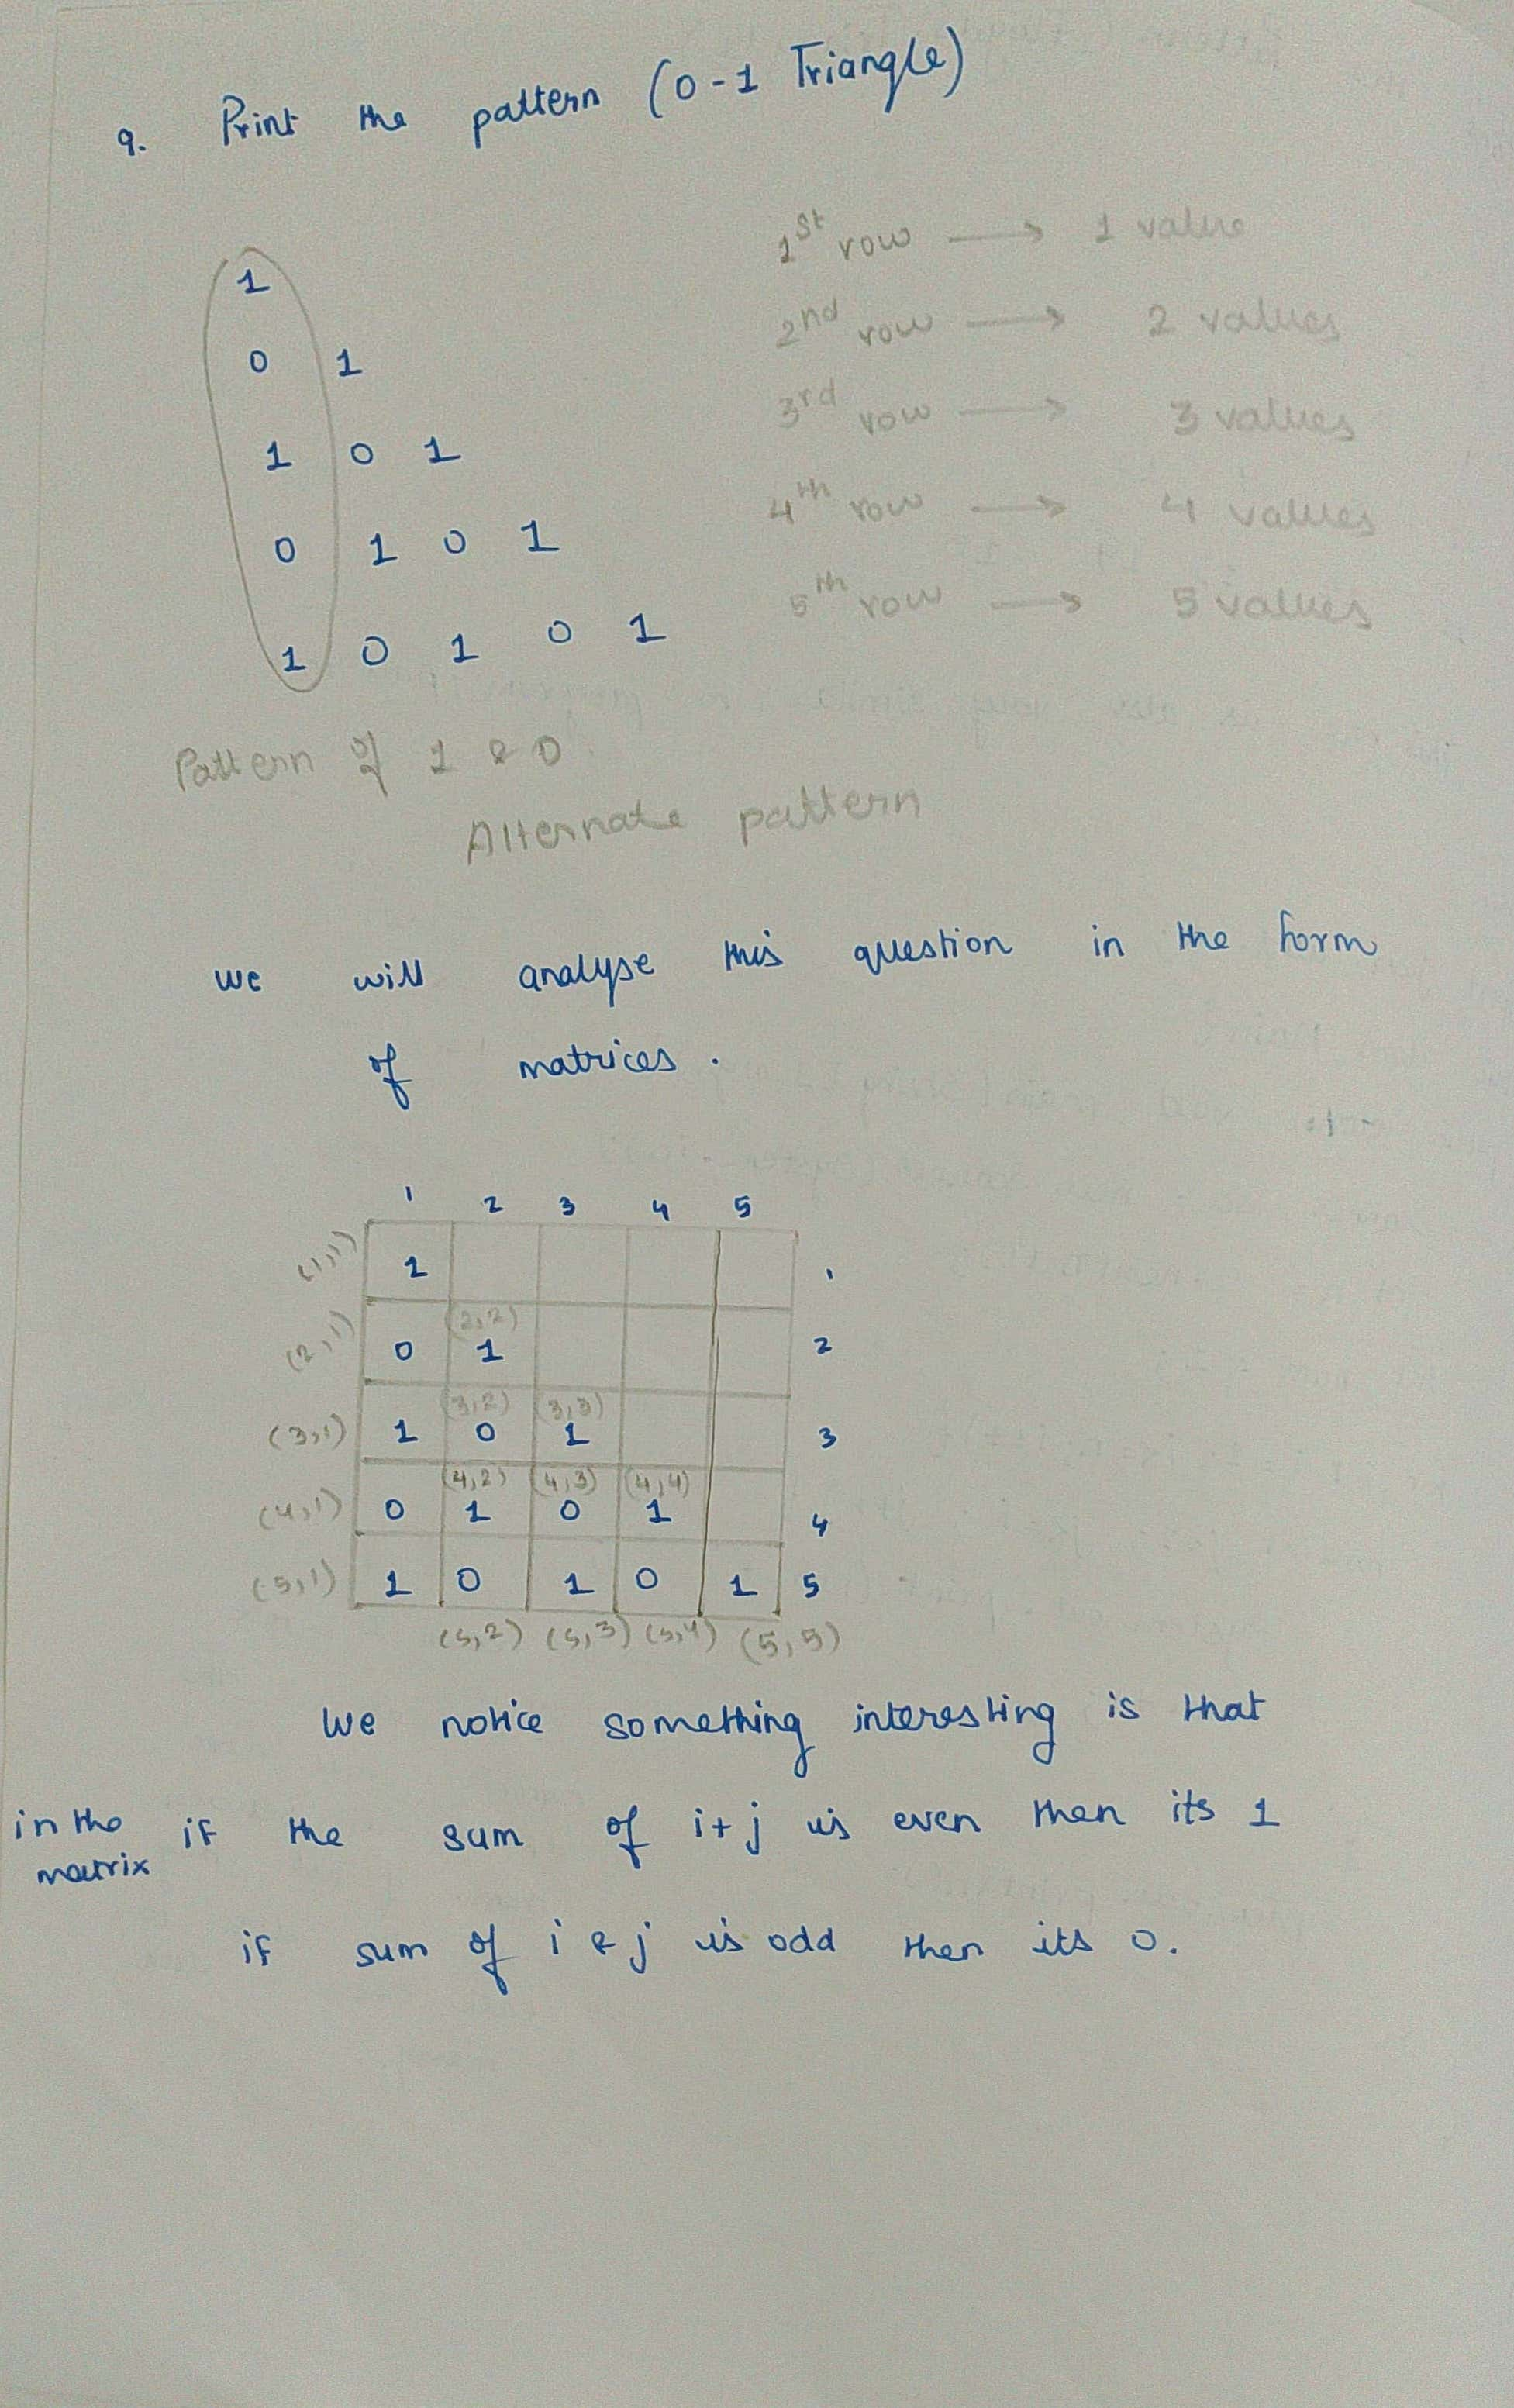 9. Print the pattern (0-1 Triangle)
1
0 1
1 0 1
0 1 0 1
1 0 1 0 1
1st row → 1 value
2nd row → 2 values
3rd row → 3 values
4th row → 4 values
5th row → 5 values
Pattern of 1 & 0
Alternate pattern
we will analyse this question in the form
of matrices.
1 2 3 4 5
(1,1) 1 1
(2,2)
(2,1) 0 1 2
(3,2) (3,3)
(3,1) 1 0 1 3
(4,2) (4,3) (4,4)
(4,1) 0 1 0 1 4
(5,1) 1 0 1 0 1 5
(5,2) (5,3) (5,4) (5,5)
We notice something interesting is that
in the matrix if the sum of i+j is even then its 1
if sum of i & j is odd then its 0.